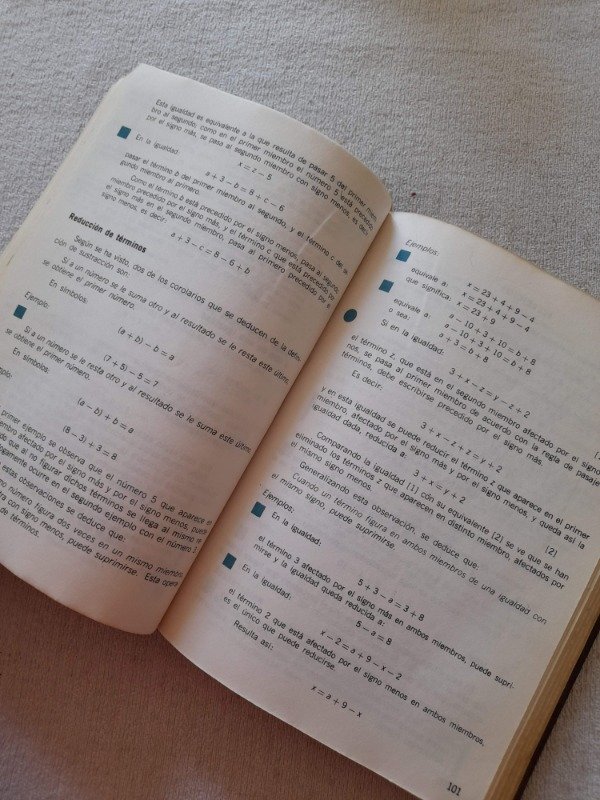 Esta igualdad es equivalente a la que resulta de pasar 5 del primer miem-
bro al segundo; como en el primer miembro el número 5 está precedido
por el signo más, se pasa al segundo miembro con signo menos, es decir:
x = z - 5
En la igualdad:
a + 3 - b = 8 + c - 6
pasar el término b del primer miembro al segundo, y el término c de se-
gundo miembro al primero.
Como el término b está precedido por el signo menos, pasa al segundo
miembro precedido por el signo más, y el término c que está precedido por
el signo más en el segundo miembro, pasa al primero precedido por el
signo menos, es decir:
a + 3 - c = 8 - 6 + b
Reducción de términos
Según se ha visto, dos de los corolarios que se deducen de la defini-
ción de sustracción son:
Si a un número se le suma otro y al resultado se le resta este último,
se obtiene el primer número.
En símbolos:
(a + b) - b = a
Ejemplo:
(7 + 5) - 5 = 7
Si a un número se le resta otro y al resultado se le suma este último,
se obtiene el primer número.
En símbolos:
(a - b) + b = a
(8 - 3) + 3 = 8
primer ejemplo se observa que el número 5 que aparece
afectado por el signo más y por el signo menos, puede
que al no figurar dichos términos se llega al mismo
ocurre en el segundo ejemplo con el número 3.
estas observaciones se deduce que:
número figura dos veces en un mismo miembro
con signo menos, puede suprimirse. Esta opera
de términos.
Ejemplos:
x = 23 + 4 + 9 - 4
equivale a: x = 23 + 4 + 9 - 4
que significa: x = 23 + 9
a - 10 + 3 + 10 = b + 8
equivale a: a - 10 + 3 + 10 = b + 8
o sea: a + 3 = b + 8
Si en la igualdad:
3 + x - z = y - z + 2
el término z, que está en el segundo miembro afectado por el signo
nos, se pasa al primer miembro de acuerdo con la regla de pasaje
términos, debe escribirse precedido por el signo más.
Es decir:
3 + x - z + z = y + 2
y en esta igualdad se puede reducir el término z que aparece en el primer
miembro, afectado por el signo más y por el signo menos, y queda así la
igualdad dada, reducida a:
3 + x = y + 2 [2]
Comparando la igualdad [1] con su equivalente [2] se ve que se han
eliminado los términos z que aparecen en distinto miembro, afectados por
el mismo signo.
Generalizando esta observación, se deduce que:
Cuando un término figura en ambos miembros de una igualdad con
el mismo signo, puede suprimirse.
Ejemplos:
En la igualdad:
5 + 3 - a = 3 + 8
el término 3 afectado por el signo más en ambos miembros, puede supri-
mirse y la igualdad queda reducida a:
5 - a = 8
En la igualdad:
x - 2 = a + 9 - x - 2
el término 2 que está afectado por el signo menos en ambos miembros,
es el único que puede reducirse.
Resulta así:
x = a + 9 - x
101